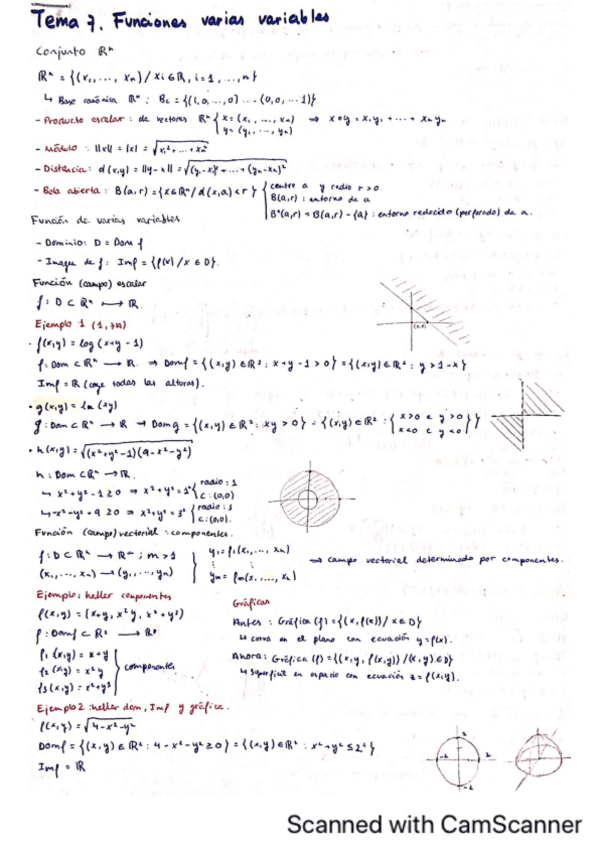 Tema 7. Funciones varias variables
Conjunto ℝⁿ
ℝⁿ = {(x₁, ..., xₙ) / xᵢ ∈ ℝ, i = 1, ..., n}
↳ Base canónica ℝⁿ : Bc = {(1, 0, ..., 0) ... (0, 0, ... 1)}
- Producto escalar : de vectores ℝⁿ { x = (x₁, ..., xₙ) y = (y₁, ..., yₙ) ⇒ x • y = x₁y₁ + ... + xₙyₙ
- Módulo : ||x|| = |x| = √x₁² + ... + xₙ²
- Distancia : d(x,y) = ||y - x|| = √(y₁-x₁)² + ... + (yₙ-xₙ)²
- Bola abierta : B(a,r) = {x ∈ ℝⁿ / d(x,a) < r} { centro a y radio r > 0
B(a,r) : entorno de a
B*(a,r) = B(a,r) - {a} : entorno reducido (perforado) de a.
Función de varias variables
- Dominio : D = Dom f
- Imagen de f : Im f = {f(x) / x ∈ D}.
Función (campo) escalar
f : D ⊂ ℝⁿ ⟼ ℝ.
(0,0)
Ejemplo 1
· f(x,y) = log (x+y-1)
f : Dom ⊂ ℝⁿ → ℝ ⇒ Dom f = {(x,y) ∈ ℝ² : x+y-1 > 0} = {(x,y) ∈ ℝ² : y > 1-x}
Im f = ℝ (coge todas las alturas).
· g(x,y) = ln (xy)
g : Dom ⊂ ℝⁿ → ℝ → Dom g = {(x,y) ∈ ℝ² : xy > 0} = {(x,y) ∈ ℝ² : { x>0 e y>0 x<0 e y<0 }
· h(x,y) = √(x²+y²-1)(9-x²-y²)
h : Dom ⊂ ℝⁿ → ℝ.
↪ x²+y²-1 ≥ 0 ⇒ x²+y² = 1² { radio : 1 C : (0,0)
↪ -x²-y²+9 ≥ 0 ⇒ x²+y² = 3² { radio : 3 C : (0,0).
Función (campo) vectorial : componentes.
f : D ⊂ ℝⁿ → ℝᵐ ; m > 1
(x₁, ..., xₙ) → (y₁, ..., yₘ)
y₁ = f₁(x₁, ..., xₙ)
⋮
yₘ = fₘ(x₁, ..., xₙ)
⇒ campo vectorial determinado por componentes.
Ejemplo : hallar componentes
f(x,y) = (x+y, x²y, x²+y²)
f : Dom f ⊂ ℝ² → ℝ³
f₁(x,y) = x+y
f₂(x,y) = x²y
f₃(x,y) = x²+y²
} componentes
Gráficas
Antes : Gráfica (f) = {(x, f(x)) / x ∈ D}
↳ curva en el plano con ecuación y = f(x).
Ahora : Gráfica (f) = {(x,y, f(x,y)) / (x,y) ∈ D}
↳ superficie en espacio con ecuación z = f(x,y).
Ejemplo 2 : hallar dom, Im f y gráfica.
f(x,y) = √4-x²-y²
Dom f = {(x,y) ∈ ℝ² : 4-x²-y² ≥ 0} = {(x,y) ∈ ℝ² : x²+y² ≤ 2²}
Im f = ℝ
2
-2 2
-2
Scanned with CamScanner